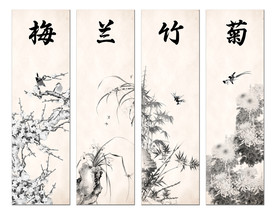 梅 兰 竹 菊